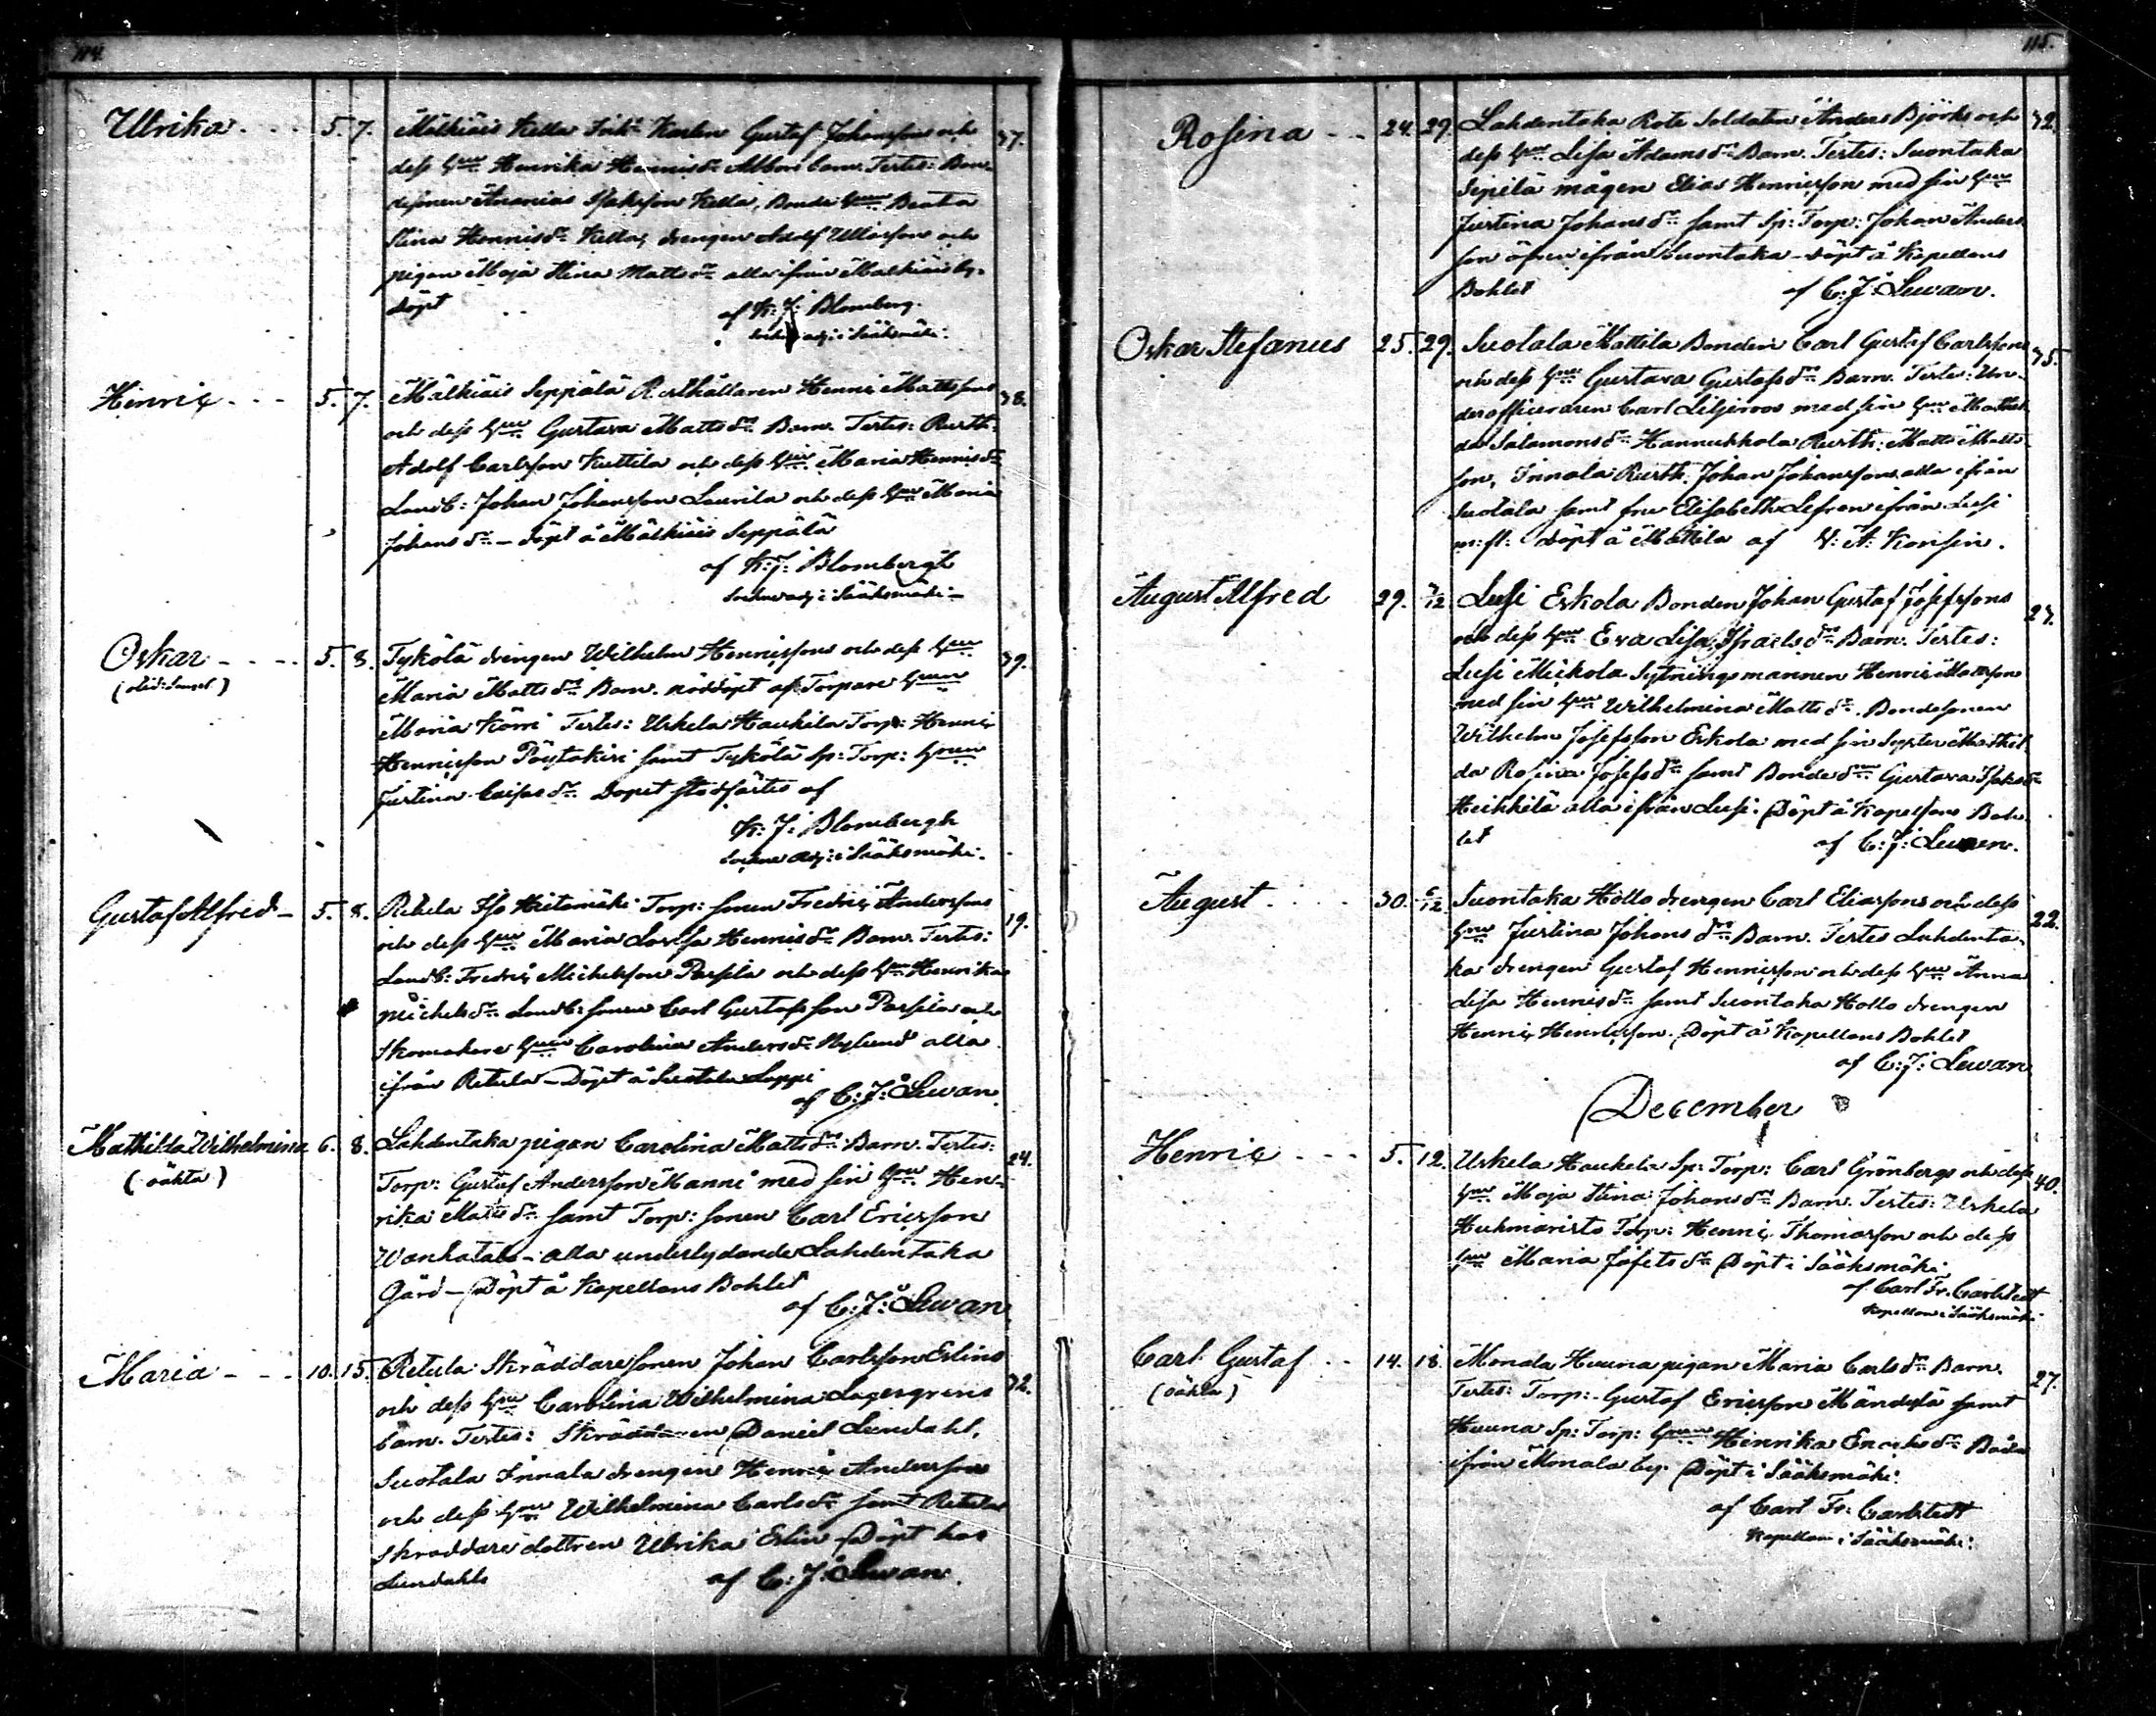 114.
Ulrika. . . 5. 7. Mälkiäis Kella Karlen Gustaf Johansson och 37.
dess hu Henrika Henricsdr Barn. Testes: Bon-
desonen Ananias Isaksson Kella, Bonde hu Beata
Stina Henricsdr Kella, drengen Adolf och
pigan Maja Stina Mattsdr alla ifrån Mälkiäis by.
döpt af K: J: Blomberg.
Sockne adj: i Sääksmäki.
Henric - - - 5. 7. Mälkiäis Seppälä Rusthållaren Henric Mattsons 38.
och dess hu Gustava Mattsdr Barn. Testes: Rusth:
Adolf Carlsson Kuttila och dess hu Maria Henricsdr
Landb: Johan Johansson Laurila och dess hu Maria
Johansdr – döpt å Mälkiäis Seppälä
af K: J: Blombergh
Sockne adj: i Sääksmäki –
Oskar - - - - 5. 8. Tykölä drengen Wilhelm Henricssons och dess hu 39.
Maria Mattsdr Barn. nöddöpt af Torpare hu
Maria Testes: Uskela Haukila Torp: Henric
Henricsson samt Tykölä Sp: Torp: hu
Justina dr Dopet stadfästes af
K: J: Blombergh
Sockne adj: i Sääksmäki.
Gustaf Alfred – 5. 8. Retula Iso Hietamäki Torp: sonen Fredric Anderssons 19.
och dess hu Maria Lovisa Henricsdr Barn. Testes:
Landb: Fredric Michelsson Passila och dess hu Henrika
Michelsdr Landb: sonen Carl Gustafsson Passila och
Skomakare hu Carolina Andersdr Nylund alla
ifrån Retula – Döpt å Suotala Lappi
af C: J: Lewan.
Mathilda Wilhelmina 6. 8. Lahdentaka pigan Carolina Mattsdr Barn. Testes: 24.
(oäkta) Torp: Gustaf Andersson Manni med sin hu Hen-
rika Mattsdr samt Torp: sonen Carl Ericsson
Wanhatalo – alla underlydande Lahdentaka
Gård – Döpt å Kapellans Bohlet
af C: J: Lewan
Maria - - - 10. 15. Retula Skräddaresonen Johan Carlsson Eslins 32.
och dess hu Carolina Wilhelmina Lagergrens
barn. Testes: Skräddaren Daniel Lundahl,
Suotala Innala drengen Henric Andersson
och dess hu Wilhelmina Carlsdr samt Retula
Skräddare dottren Ulrika Eslin Döpt hos
Lundahls af C: J: Lewan.
115.
Rosina - - 24. 29. Lahdentaka Rote Soldaten Anders Björks och 32.
dess hu Lisa Adamsdr Barn. Testes: Suontaka
Sipilä mågen Elias Henricsson med sin hu
Justina Johansdr samt Sp: Torp: Johan Anders-
son ifrån Suontaka – döpt å Kapellans
Bohlet af C: J: Lewan.
Oskar Stefanus 25. 29. Suotala Mattila Bonden Carl Gustaf Carlssons 35.
och dess hu Gustava Gustafsdr Barn. Testes: Un-
derofficeraren Carl Liljeroos med sin hu Mathil-
da Salamonsdr Hannukkola Rusth: Matts Matts-
son, Innala Rusth: Johan Johansson alla ifrån
Suotala samt fru Elisabeth Lefren ifrån Lusi
m: fl: döpt å Mattila af Konsin.
August Alfred 29. 3/12 Lusi Eskola Bonden Johan Gustaf Josefssons 23.
och dess hu Eva Lisa Israelsdr Barn. Testes:
Lusi Mickola Sytningsmannen Henric Mattsson
med sin hu Wilhelmina Mattsdr. Bondesonen
Wilhelm Josefsson Eskola med sin Syster Mathil-
da Rosina Josefsdr samt Bondedr Gustava Isaksdr
Heikkilä alla ifrån Lusi. Döpt å Kapellans Boh-
let af C: J: Lewan.
August . . . . 30. 6/12 Suontaka Hollo drengen Carl Eliassons och dess 22.
hu Justina Johansdr Barn. Testes Lahdenta-
ka drengen Gustaf Henricsson och dess hu Anna
Lisa Henricsdr samt Suontaka Hollo drengen
Henric Henricsson. Döpt å Kapellans Bohlet
af C: J: Lewan
December
Henric - - - 5. 12. Uskela Haukela Sp: Torp: Carl Grönbergs och dess 40.
hu Maja Stina Johansdr Barn. Testes: Uskela
Huhmaristo Torp: Henric Thomasson och dess
hu Maria Josefsdr Döpt i Sääksmäki
af Carl Fr. Carlstedt
Kapellan i Sääksmäki
Carl Gustaf - - 14. 18. Monala Huuna pigan Maria Carlsdr Barn. 27.
(oäkta) Testes: Torp: Gustaf Ericsson Mändylä samt
Huuna Sp: Torp: hu Henrika Enochsdr Båda
ifrån Monala by. Döpt i Sääksmäki
af Carl Fr: Carlstedt
Kapellan i Sääksmäki.